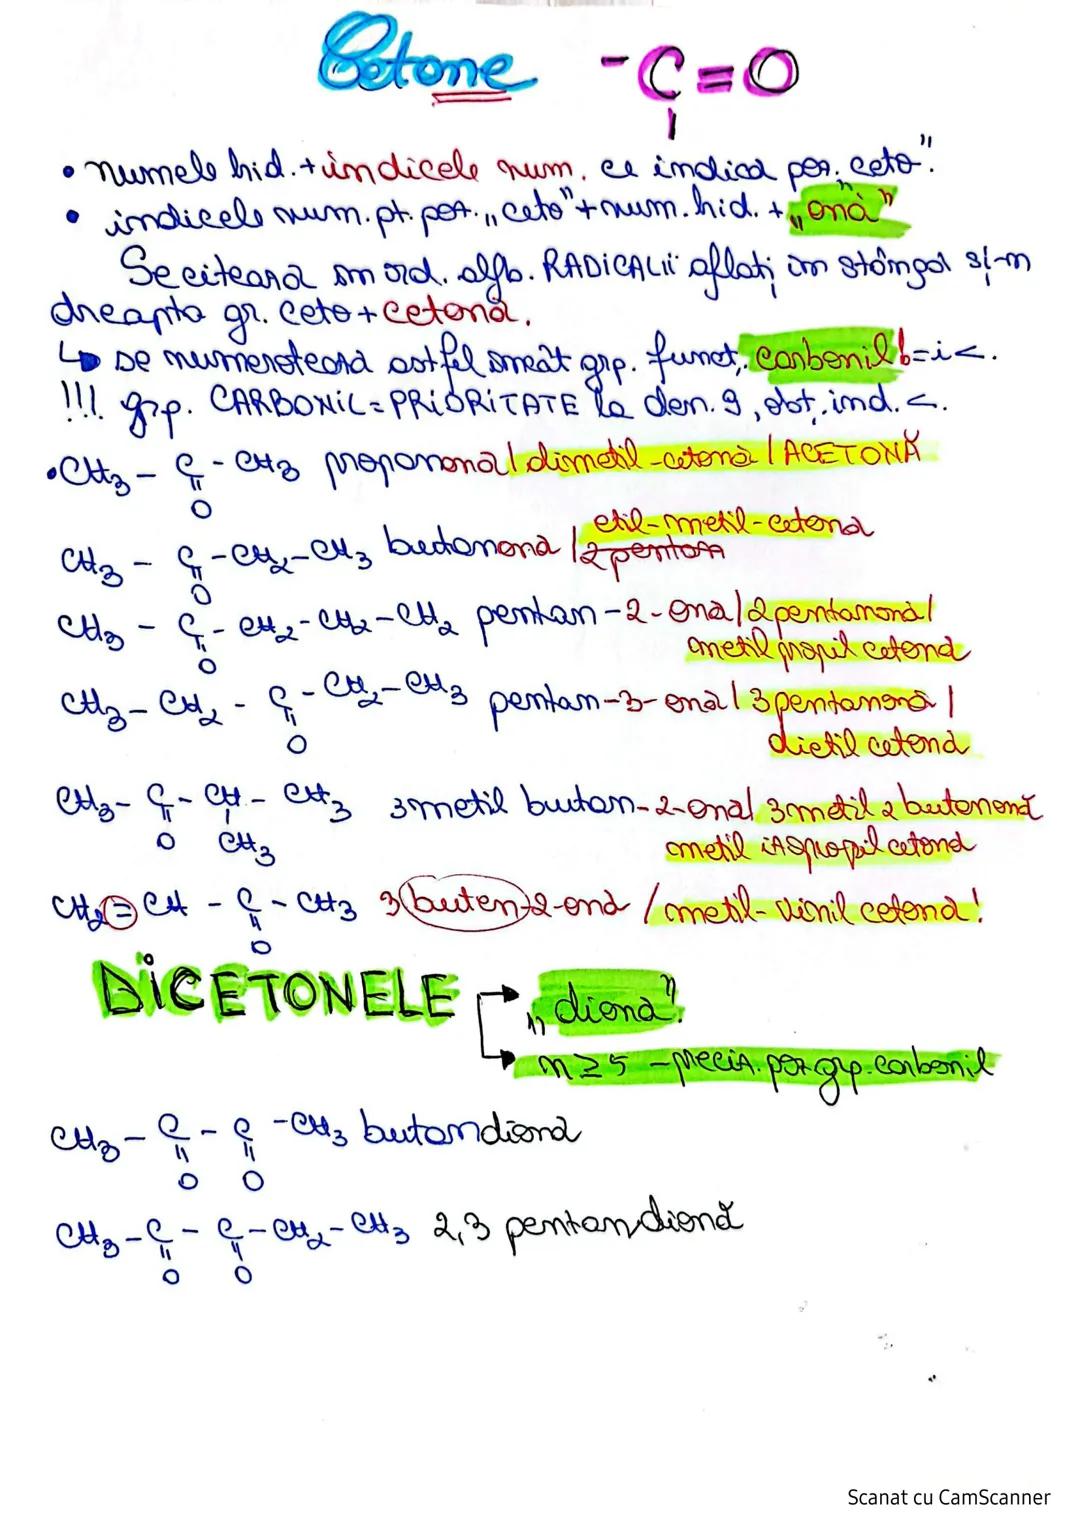 Cetone -C=O
• numele hid. + indicele num. ce indică poz. ceto".
• indicele num. pt. poz. „ceto" + num. hid. + „onă"
Se citează în ord. alfb. RADICALII aflați în stânga și-n
dreapta gr. ceto + cetonă.
↳ se numerotează astfel încât grp. funcț. carbonil b=i<.
!!! grp. CARBONIL = PRIORITATE la den. ș, obt. ind. <.
• CH3 - C - CH3 propanonă / dimetil-cetonă / ACETONĂ
O
etil-metil-cetonă
CH3 - C - CH2 - CH3 butanonă / 2pentan
O
CH3 - C - CH2 - CH2 - CH2 pentan-2-onă / 2pentanonă /
O metil propil cetonă
CH3 - CH2 - C - CH2 - CH3 pentan-3-onă / 3pentanonă /
O dietil cetonă
CH3 - C - CH - CH3 3metil butan-2-onă / 3metil 2 butanonă
O CH3 metil izopropil cetonă
CH2 = CH - C - CH3 3 buten-2-onă / metil-vinil cetonă!
O
DICETONELE → „dionă".
→ n≥5 - preciz. poz. grp. carbonil
CH3 - C - C - CH3 butandionă
O O
CH3 - C - C - CH2 - CH3 2,3 pentandionă
O O
Scanat cu CamScanner